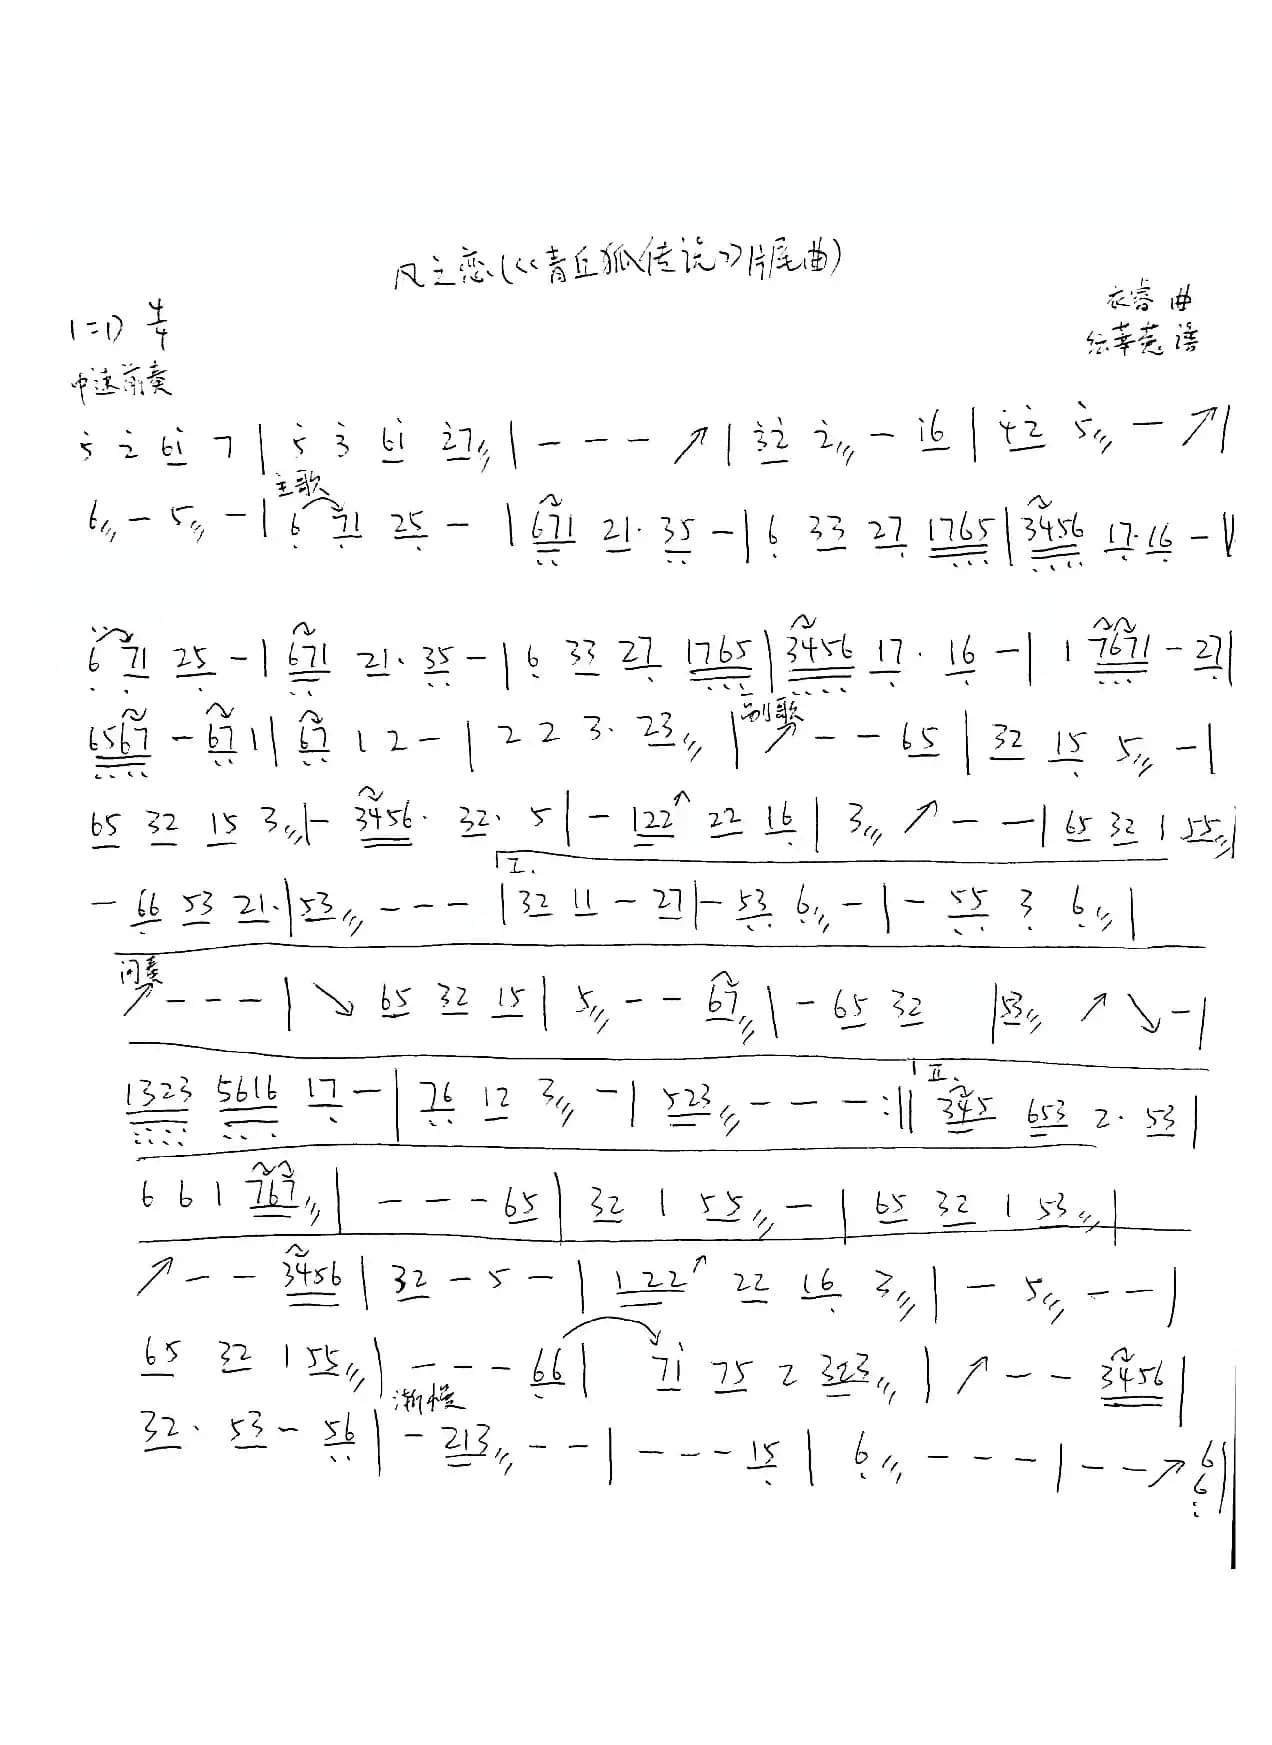 风之恋(《青丘狐传说》片尾曲)
衣睿 曲
1=D 4/4
莘莞 谱
中速前奏
5 2 61 7 | 5 3 61 27 | - - - ↗ | 32 2 - 16 | 42 5 - ↗ |
主歌
6 - 5 - | 6 71 25 - | 671 21· 35 - | 6 33 27 1765 | 3456 17· 16 - |
6 71 25 - | 671 21· 35 - | 6 33 27 1765 | 3456 17· 16 - | 1 7671 - 27 |
副歌
6567 - 67 1 | 67 1 2 - | 2 2 3· 23 | ↗ - - 65 | 32 15 5 - |
65 32 15 3 | - 3456· 32· 5 | - 122 22 16 | 3 ↗ - - | 65 32 1 55 |
I.
- 66 53 21· | 53 - - - | 32 11 - 27 | - 53 6 - | - 55 3 6 |
间奏
↗ - - - | ↘ 65 32 15 | 5 - - 67 | - 65 32 | 53 ↗ ↘ - |
II.
1323 5616 17 - | 76 12 3 - | 523 - - - :|| 345 653 2· 53 |
6 6 1 767 | - - - 65 | 32 1 55 - | 65 32 1 53 |
↗ - - 3456 | 32 - 5 - | 122 22 16 3 | - 5 - - |
65 32 1 55 | - - - 66 | 71 75 2 323 | ↗ - - 3456 |
渐慢
32· 53 - 56 | - 213 - - | - - - 15 | 6 - - - | - - ↗ 6 |
6